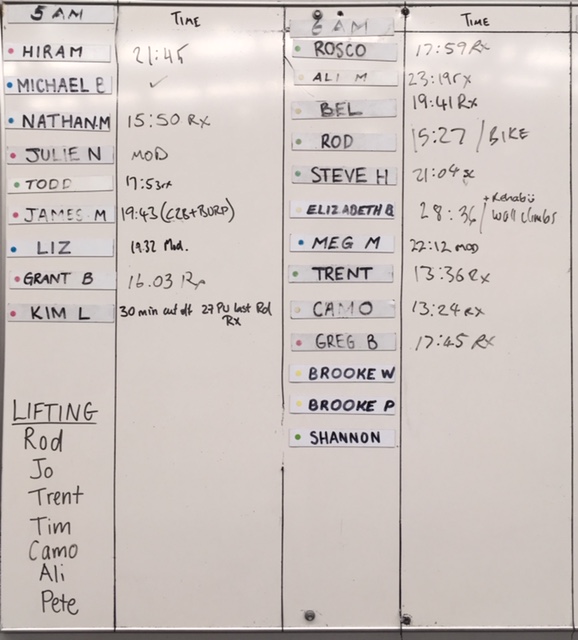 5 AM TIME
HIRAM 21:45
MICHAEL B ✓
NATHAN.M 15:50 Rx
JULIE N MOD
TODD 17:53rx
JAMES M 19:43 (C2B+BURP)
LIZ 19:32 Mod.
GRANT B 16.03 Rx
KIM L 30 min cut off 27 PU last Rd
Rx
LIFTING
Rod
Jo
Trent
Tim
Camo
Ali
Pete
6 AM TIME
ROSCO 17:59 Rx
ALI M 23:19rx
BEL 19:41 Rx
ROD 15:27 / BIKE
STEVE H 21:04
+ Rehab
ELIZABETH B 28:36 / wall climbs
MEG M 22:12 MOD
TRENT 13:36 Rx
CAMO 13:24 RX
GREG B 17:45 RX
BROOKE W
BROOKE P
SHANNON